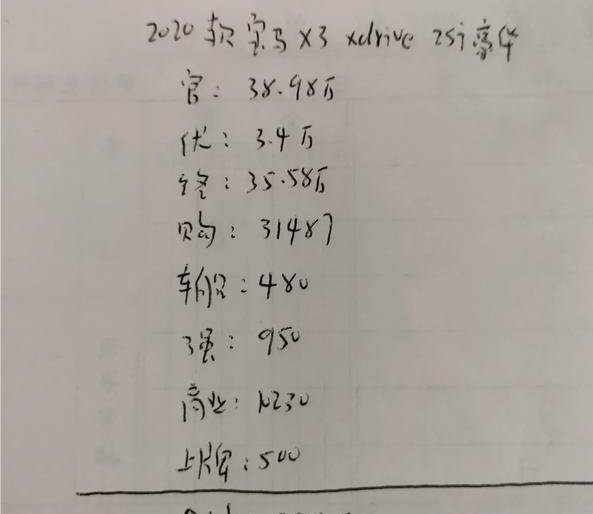 2020款宝马X3 xdrive 25i豪华
官：38.98万
优：3.4万
终：35.58万
购：31487
车船：480
强：950
商业：10230
上牌：500